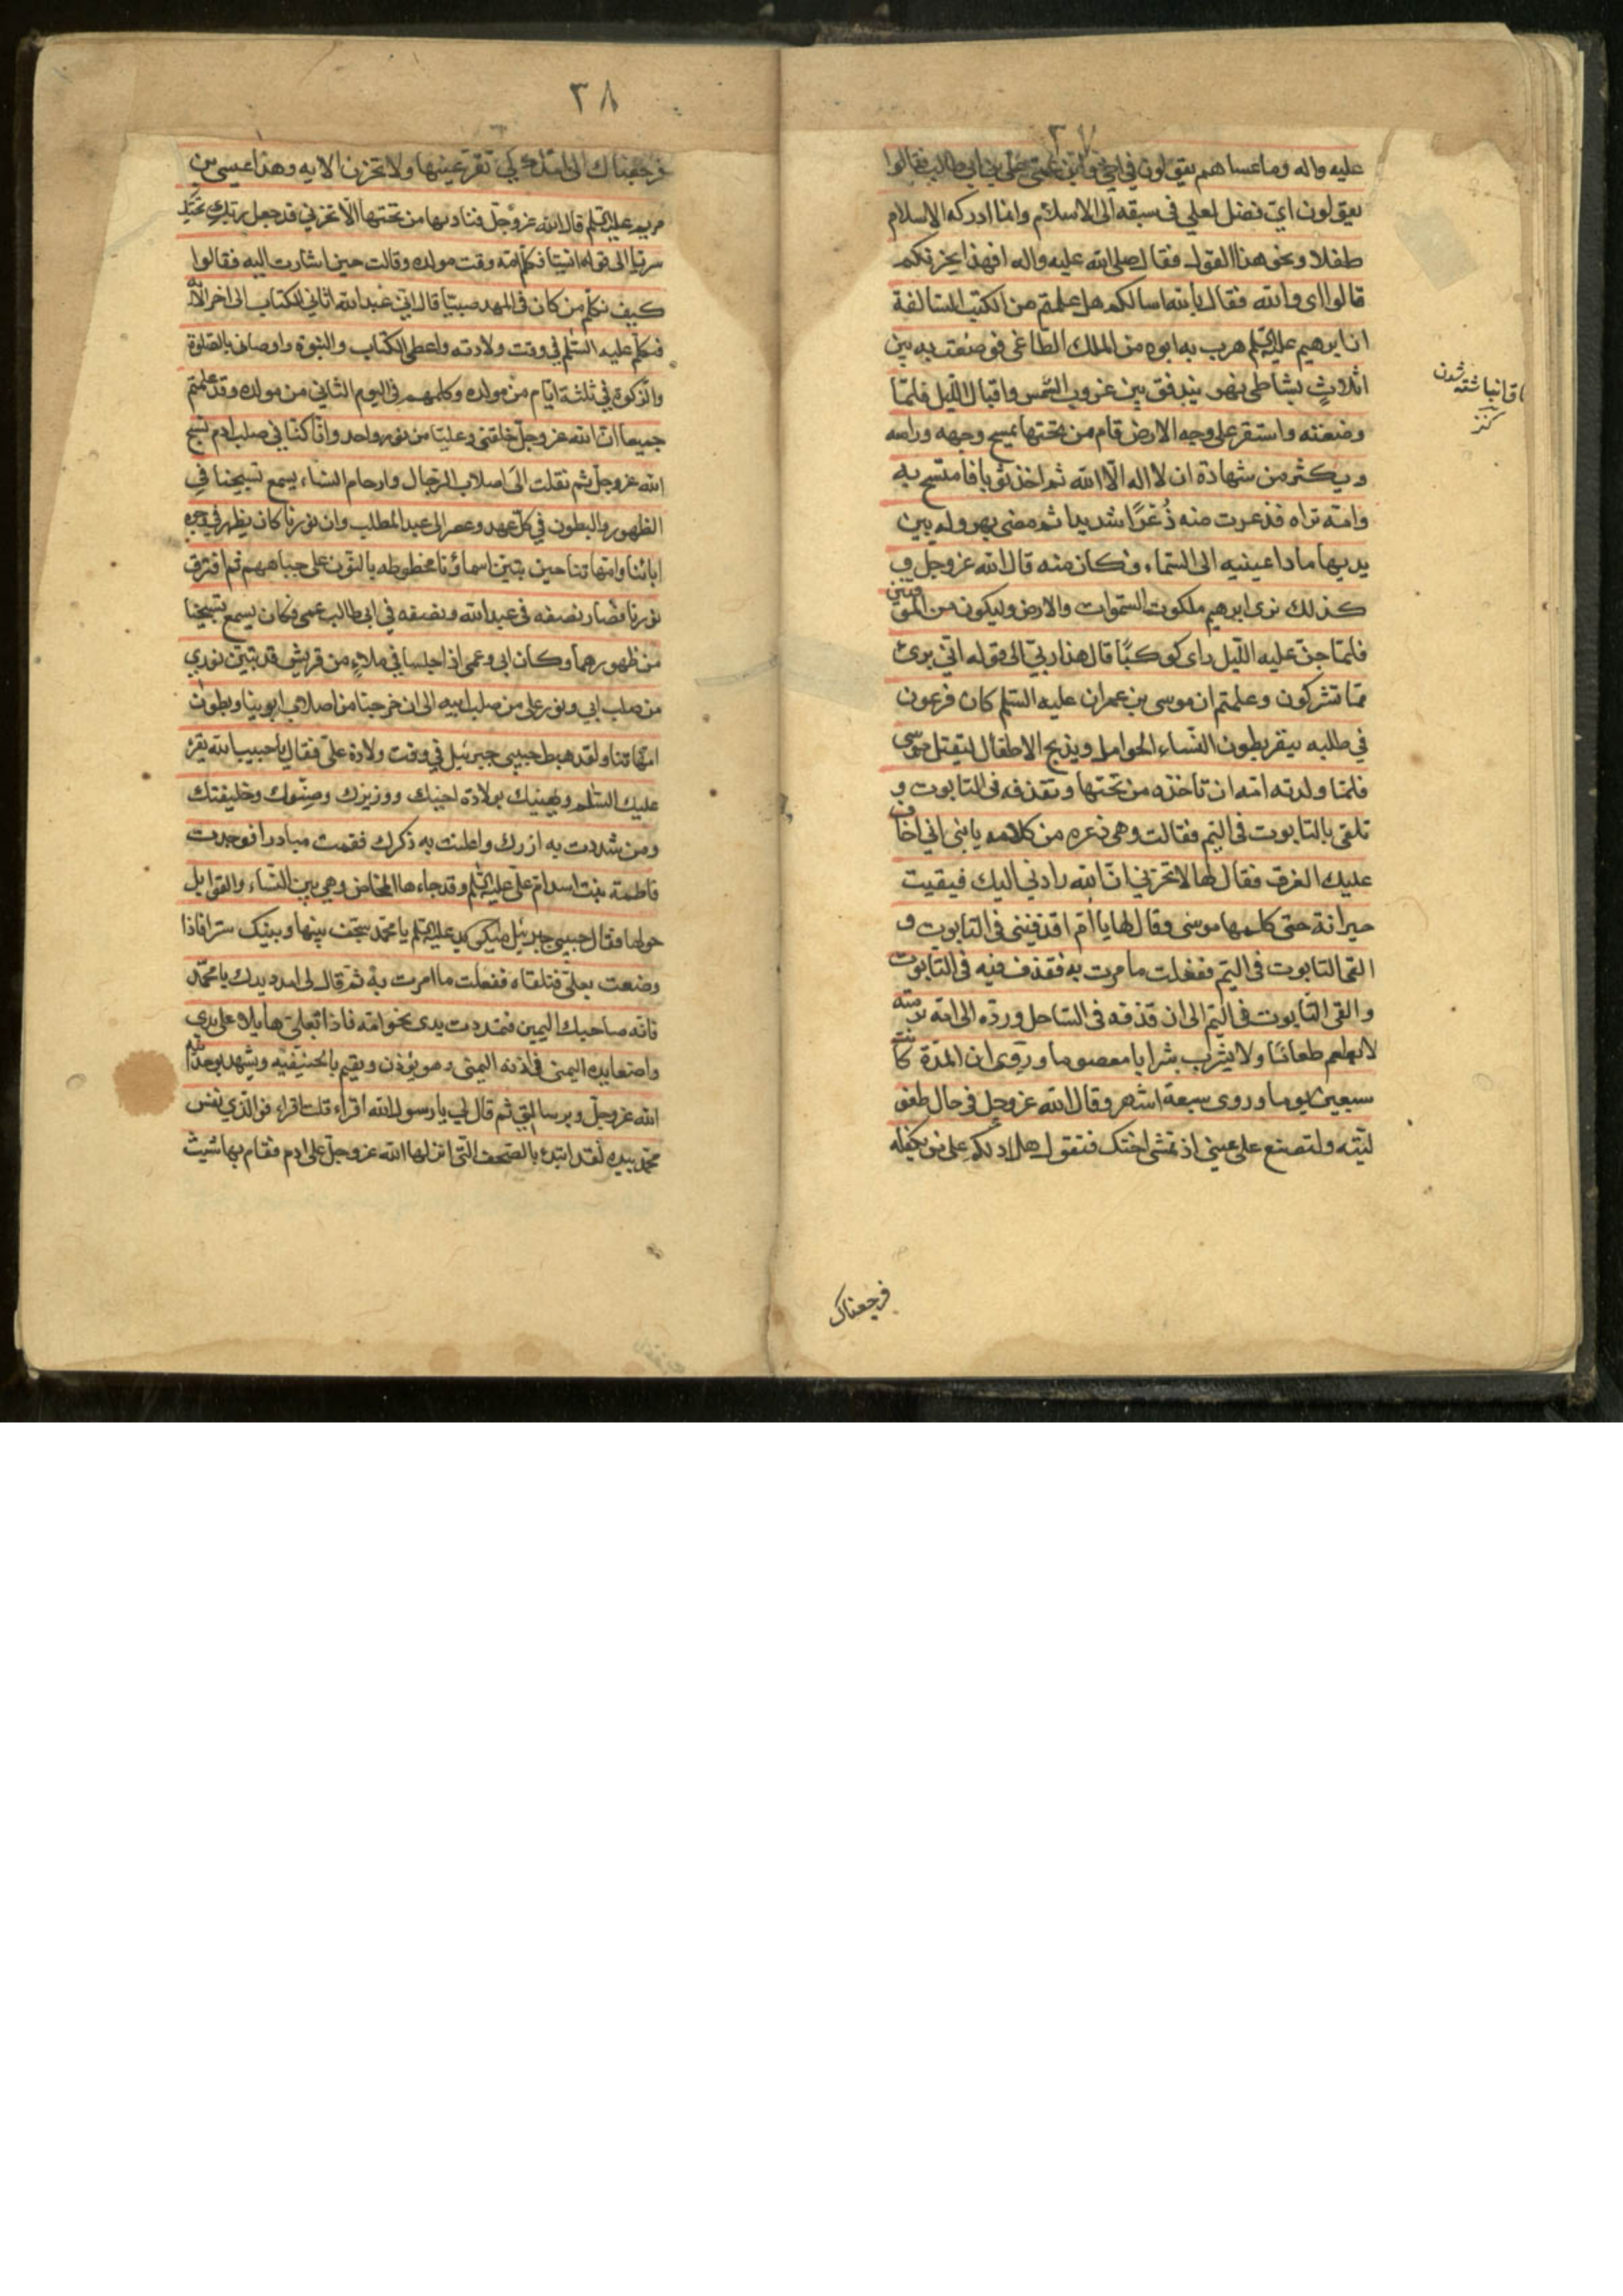 ٣٧
عليه واله وما عساهم يقولون في اخي وابن عمي علي بن ابي طالب فقالوا
يقولون اي فضل لعلي في سبقه الى الاسلام وانما ادركه الاسلام
طفلا ونحو هذا القول فقال صلى الله عليه واله افهذا يحزنكم
قالوا اي والله فقال بالله اسالكم هل علمتم من الكتب السالفة
ان ابرهيم عليه السلم هرب به ابوه من الملك الطاغي فوضعت به بين
اثلاث بشاطئ نهر يتدفق بين غروب الشمس واقبال الليل فلما
وضعته واستقر على وجه الارض قام من تحتها يمسح وجهه وراسه
ويكثر من شهادة ان لا اله الا الله ثم اخذ ثوبا فامتسح به
وامه تراه فذعرت منه ذعرا شديدا ثم مضى يهرول بين
يديها مادا عينيه الى السماء فكان منه قال الله عز وجل و
كذلك نرى ابرهيم ملكوت السموات والارض وليكون من الموقنين
فلما جن عليه الليل راى كوكبا قال هذا ربي الى قوله اني برئ
مما تشركون وعلمتم ان موسى بن عمران عليه السلم كان فرعون
في طلبه يبقر بطون النساء الحوامل ويذبح الاطفال ليقتل موسى
فلما ولدته امه ان تاخذه من تحتها وتقذفه في التابوت و
تلقي بالتابوت في اليم فقالت وهي ذعره من كلامه يا بني اني اخاف
عليك الغرق فقال لها لا تحزني ان الله رادني اليك فبقيت
حيرانة حتى كلمها موسى وقال لها يا ام اقذفيني في التابوت و
القي التابوت في اليم ففعلت ما امرت به فقذف فيه في التابوت
والقى التابوت في اليم الى ان قذفه في الساحل ورده الى امه برمته
لا يطعم طعاما ولا يشرب شرابا معصوما وروى ان المدة كانت
سبعين يوما وروى سبعة اشهر وقال الله عز وجل في حال طفو
ليته ولتصنع على عيني اذ تمشي اختك فتقول هل ادلكم على من يكفله
فرجعناك
انباشته شدن
كنز
٣٨
فرجعناك الى امك كي تقر عينها ولا تحزن الايه وهذا عيسى بن
مريم عليه السلم قال الله عز وجل فناديها من تحتها الا تحزني قد جعل ربك تحتك
سريا الى قوله انسيا فكلم امه وقت مولده وقالت حين اشارت اليه فقالوا
كيف نكلم من كان في المهد صبيا قال اني عبد الله اتاني الكتاب الى اخر الايه
فتكلم عليه السلم في وقت ولادته واعطى الكتاب والنبوة واوصاني بالصلوة
والزكوة في ثلثة ايام من مولده وكلمهم في اليوم الثاني من مولده وقد علمتم
جميعا ان الله عز وجل خلقني وعليا من نور واحد وانا كنا في صلب ادم نسبح
الله عز وجل ثم نقلت الى اصلاب الرجال وارحام النساء يسمع تسبيحنا في
الظهور والبطون في كل عهد وعصر الى عبد المطلب وان نورنا كان يظهر في وجوه
ابائنا وامهاتنا حين تبين اسماؤنا مخطوطه بالنور على جباههم ثم افترق
نورنا فصار نصفه في عبد الله ونصفه في ابي طالب عمي فكان يسمع تسبيحنا
من ظهورهما وكان ابي وعمي اذا جلسا في ملاء من قريش قد تبين نوري
من صلب ابي ونور علي من صلب ابيه الى ان خرجنا من اصلاب ابوينا وبطون
امهاتنا ولقد هبط حبيبي جبرئيل في وقت ولادة علي فقال يا حبيب الله يقرء
عليك السلم ويهنيك بولادة اخيك ووزيرك وصنوك وخليفتك
ومن شددت به ازرك واعلنت به ذكرك فقمت مبادرا فوجدت
فاطمة بنت اسد ام علي عليه السلم وقد جاءها المخاض وهي بين النساء والقوابل
حولها فقال حبيبي جبرئيل يا محمد سجف بينها وبينك سترا فاذا
وضعت بعلي فتلقاه ففعلت ما امرت به ثم قال لي امدد يدك يا محمد
فانه صاحبك اليمين فمددت يدي نحو امه فاذا بعلي مايلا على يدي
واضعا يده اليمنى في اذنه اليمنى وهو يؤذن ويقيم بالحنيفيه ويشهد بوحدانية
الله عز وجل وبرسالتي ثم قال لي يا رسول الله اقراء قلت اقراء فو الذي نفس
محمد بيده لقد ابتدء بالصحف التي انزلها الله عز وجل على ادم فقام بها شيث